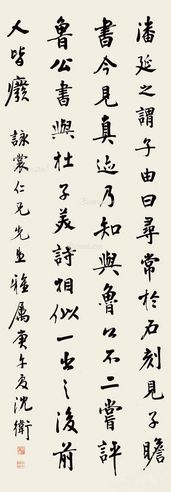 潘延之謂子由曰尋常於石刻見子瞻
書今見真迹乃知與魯公不二嘗評
魯公書與杜子美詩相似一出之後前
人皆廢
詠裳仁兄先生雅属庚午夏沈衛